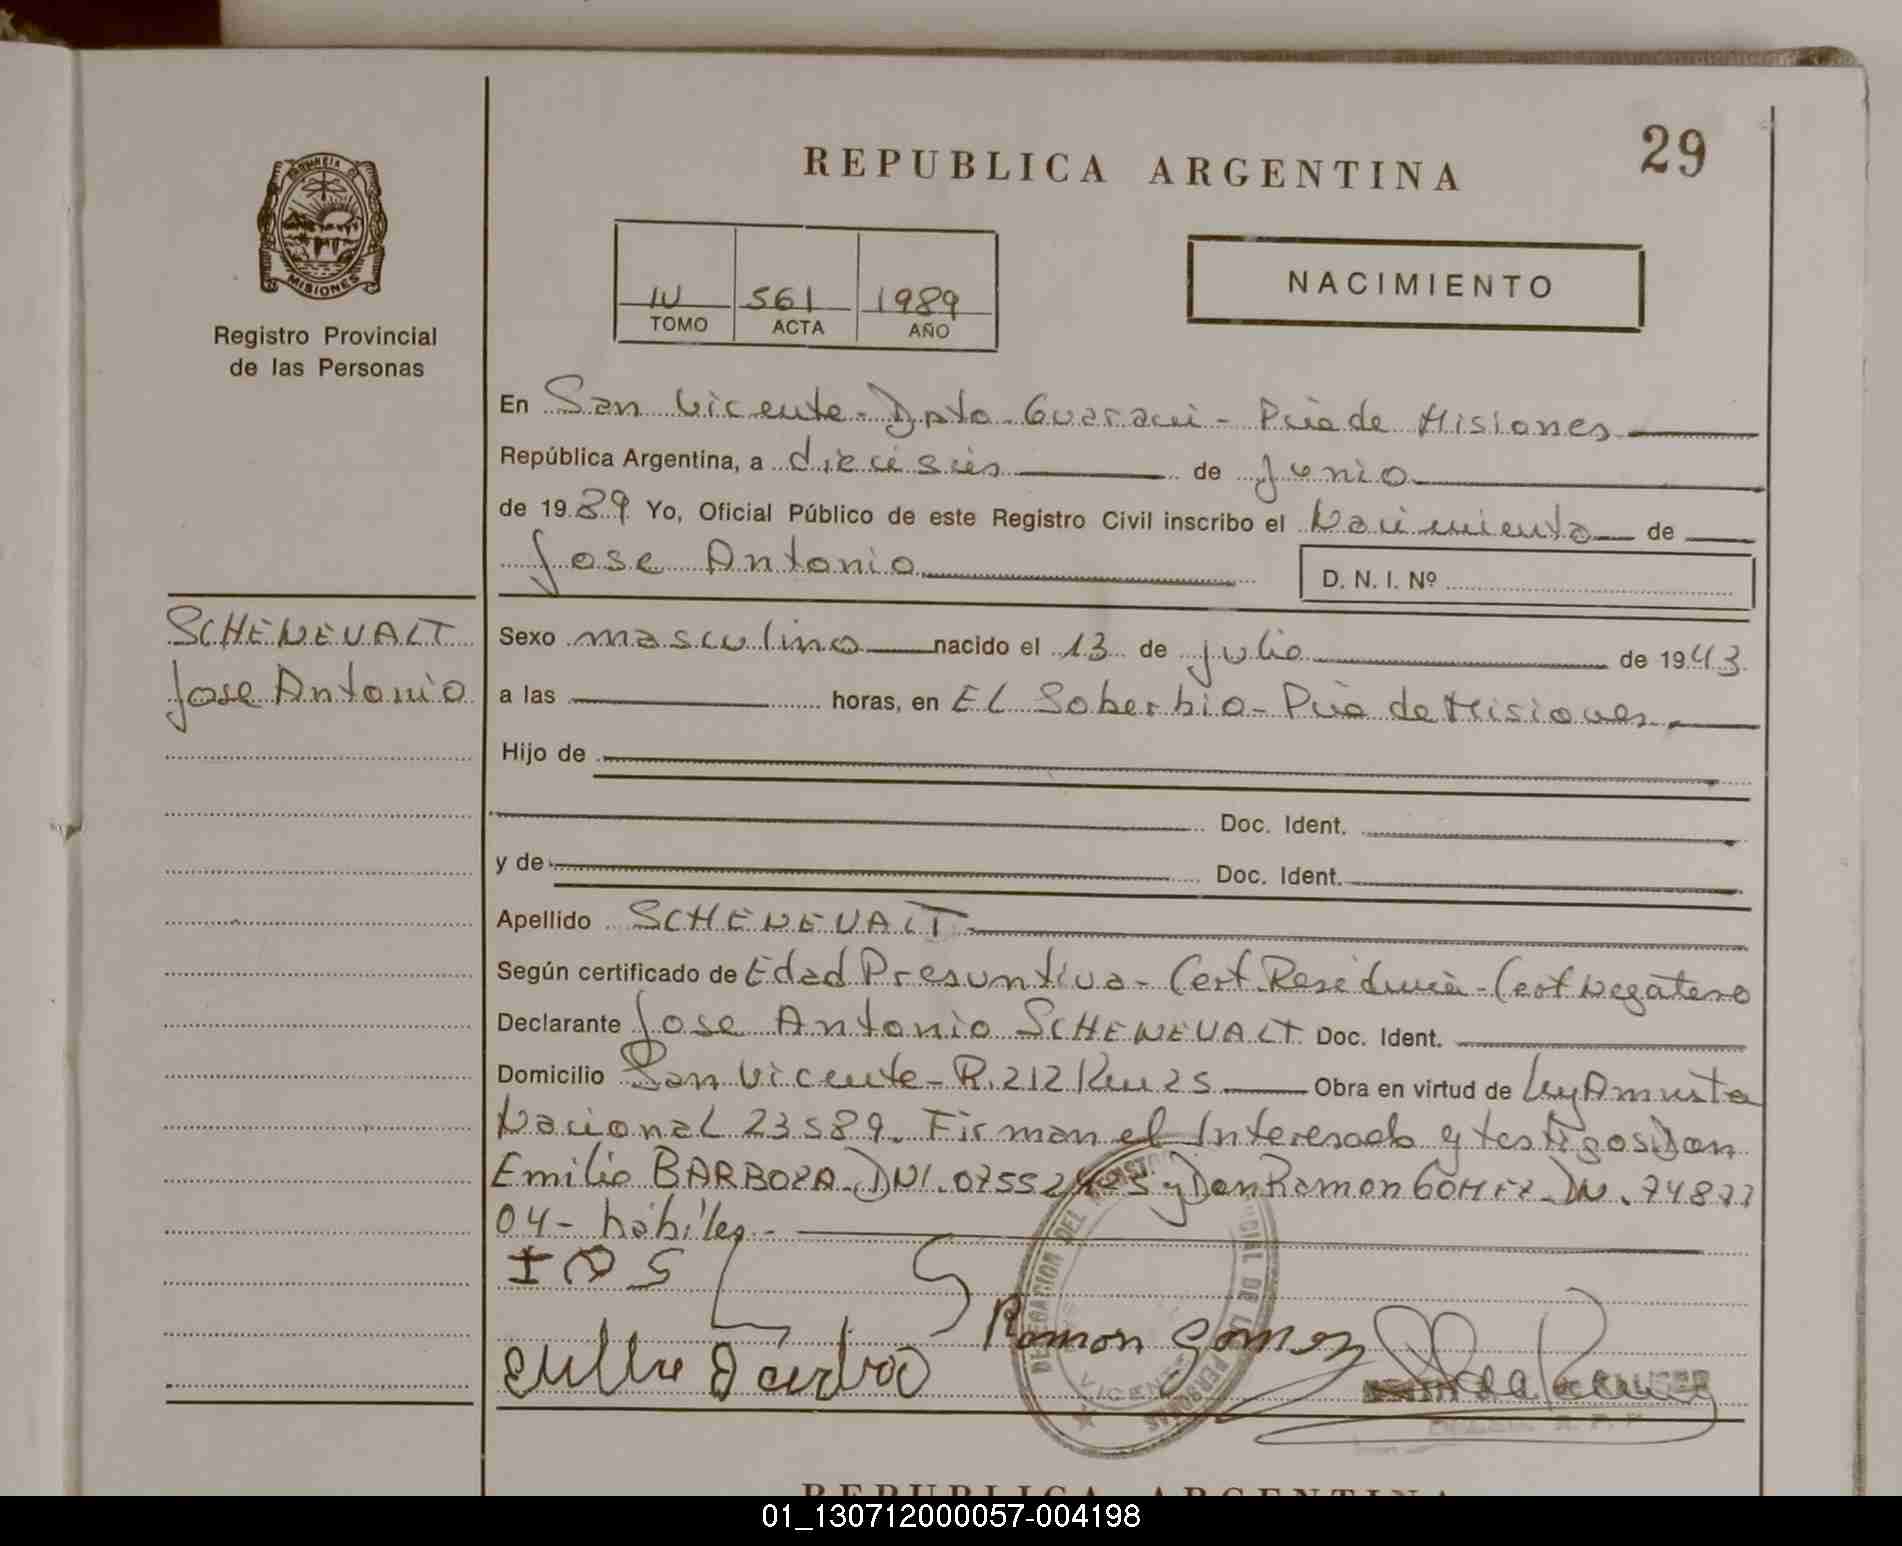 29
REPUBLICA ARGENTINA
PROVINCIA DE
MISIONES
Registro Provincial
de las Personas
IV 561 1989
TOMO ACTA AÑO
NACIMIENTO
En San Vicente - Dpto - Guarani - Pcia de Misiones
República Argentina, a dieciseis de Junio
de 1989 Yo, Oficial Público de este Registro Civil inscribo el Nacimiento de
Jose Antonio D. N. I. Nº
SCHENEVALT
Jose Antonio
Sexo masculino nacido el 13 de julio de 1943
a las horas, en EL Soberbio - Pcia de Misiones
Hijo de
Doc. Ident.
y de Doc. Ident.
Apellido SCHENEVALT
Según certificado de Edad Presuntiva - Cert. Residencia - Cert
Declarante Jose Antonio SCHENEVALT Doc. Ident.
Domicilio San Vicente - R. 212 Km 25 Obra en virtud de Ley Amnistia
Nacional 23589. Firman el Interesado y testigos Don
Emilio BARBOZA - DNI. y Don Ramon GOMEZ
04 - hábiles -
Ramon Gomez
DELEGACION DEL
VICENTE
REPUBLICA ARGENTINA
01_130712000057-004198